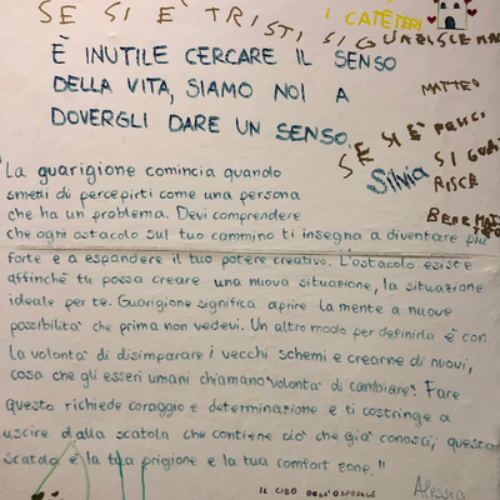 SE SI E' TRISTI SI GUARISCE
I CATETERI
È INUTILE CERCARE IL SENSO
DELLA VITA, SIAMO NOI A
DOVERGLI DARE UN SENSO.
MATTEO
SE SI È FELICI
SI GUARISCE
Silvia
BENE
"La guarigione comincia quando
smetti di percepirti come una persona
che ha un problema. Devi comprendere
che ogni ostacolo sul tuo cammino ti insegna a diventare più
forte e a espandere il tuo potere creativo. L'ostacolo esiste
affinché tu possa creare una nuova situazione, la situazione
ideale per te. Guarigione significa aprire la mente a nuove
possibilità che prima non vedevi. Un altro modo per definirla è con
la volontà di disimparare i vecchi schemi e crearne di nuovi,
cosa che gli esseri umani chiamano "volontà di cambiare". Fare
questo richiede coraggio e determinazione e ti costringe a
uscire dalla scatola che contiene ciò che già conosci; questa
scatola è la tua prigione e la tua comfort zone."
Alessia
IL CIBO DELL'OSPEDALE